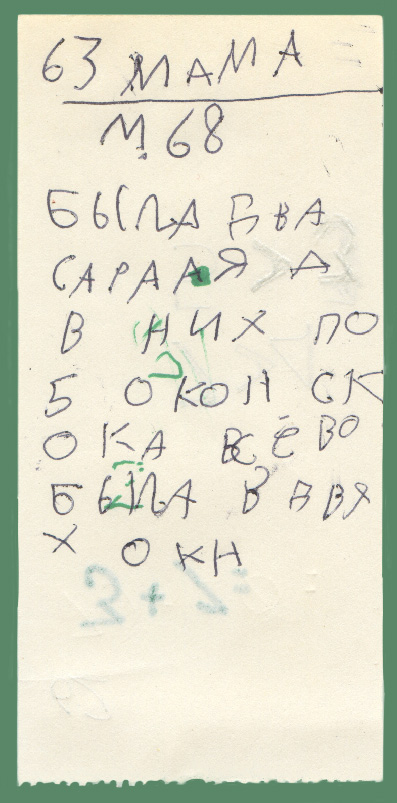 63 МАМА
М. 68
БЫЛА ДВА
САРААЯ А
В НИХ ПО
5 ОКОН СК
ОКА ВСЁВО
БЫЛА В ДВЯ
Х ОКН